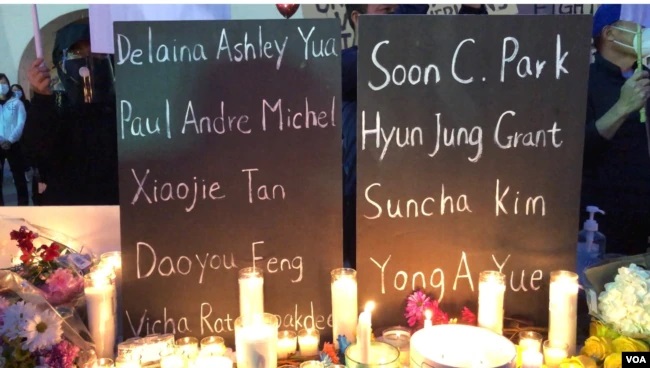 Delaina Ashley Yua
Paul Andre Michel
Xiaojie Tan
Daoyou Feng
Vicha
Soon C. Park
Hyun Jung Grant
Suncha Kim
Yong A Yue
FIGHT
VOA